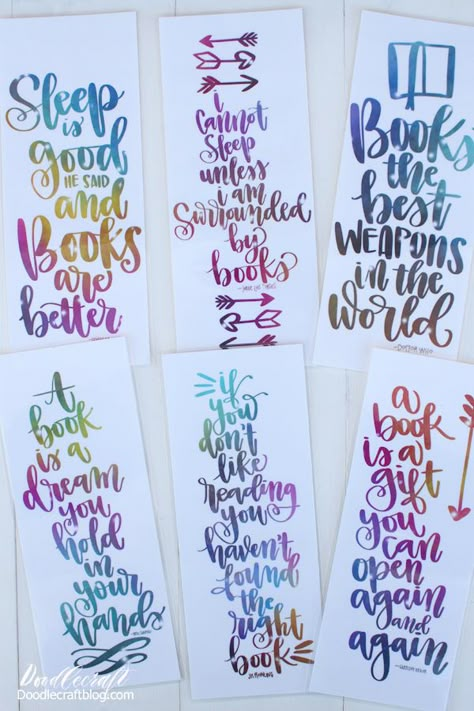 Sleep
is
good
HE SAID
and
Books
are
better
i
cannot
sleep
unless
i am
Surrounded
by
books
Books
the
best
WEAPONS
in the
World
—DOCTOR WHO
A
book
is a
dream
you
hold
in
your
hands
if
you
don't
like
reading
you
haven't
found
the
right
book
JK ROWLING
a
book
is a
gift
you
can
open
again
and
again
Doodlecraft
Doodlecraftblog.com